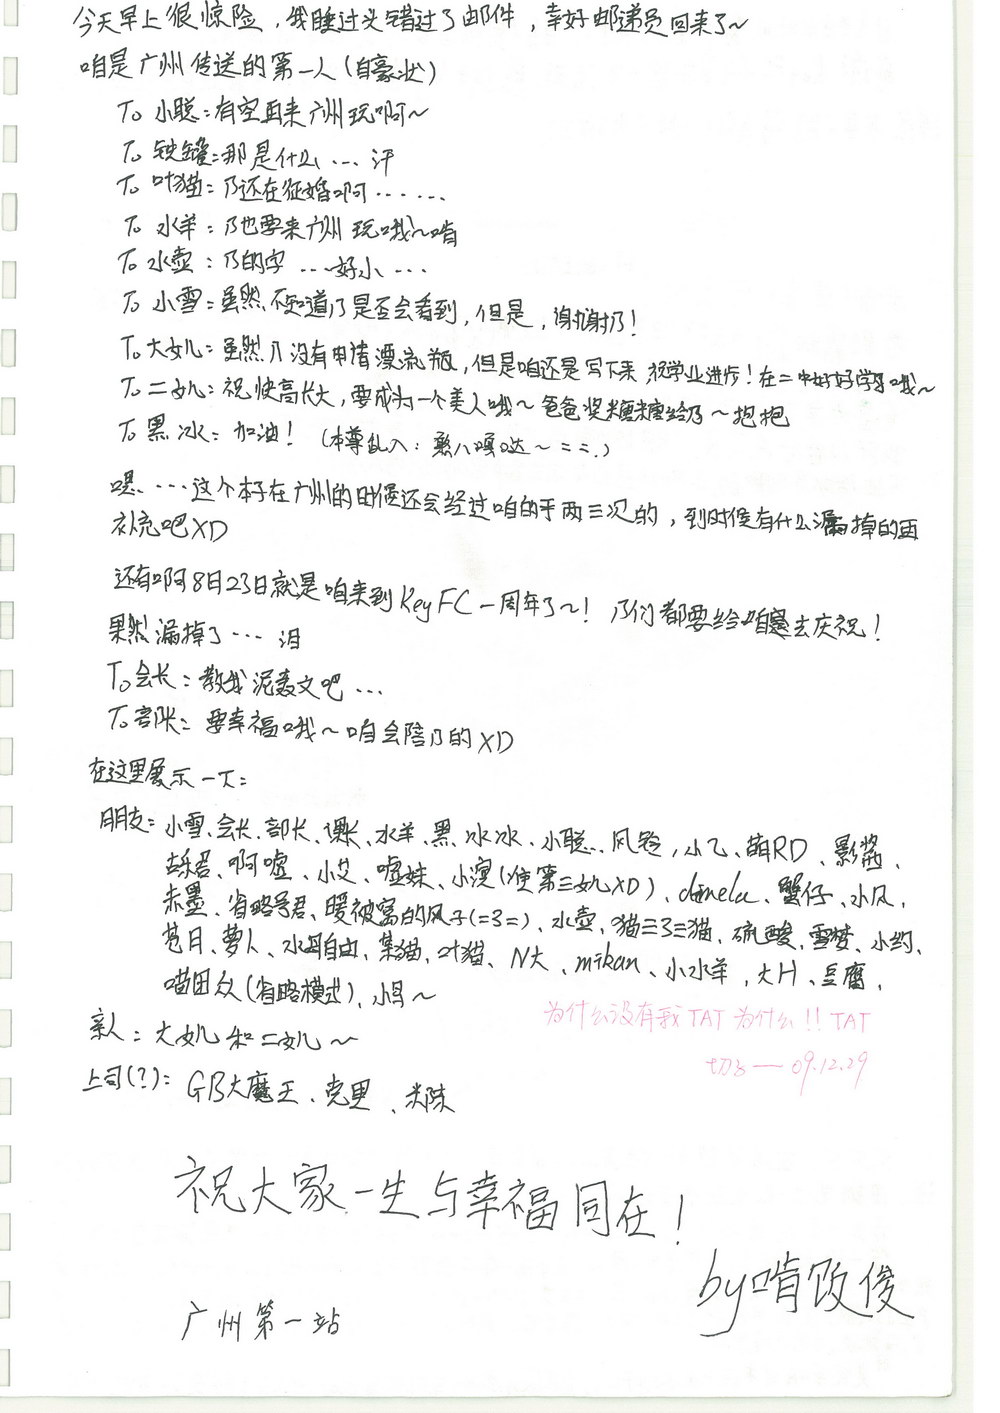 今天早上很惊险，我睡过头错过了邮件，幸好邮递员回来了~
咱是广州传送的第一人(自豪状)
To 小聪：有空再来广州玩啊~
To 铁罐：那是什么…汗
To 叶猫：乃还在征婚啊……
To 水羊：乃也要来广州玩哦~啃
To 水壶：乃的字…好小…
To 小雪：虽然不知道乃是否会看到，但是，谢谢乃！
To 大女儿：虽然乃没有申请漂流瓶，但是咱还是写下来 祝学业进步！在二中好好学习哦~
To 二女儿：祝快高长大，要成为一个美人哦~爸爸奖糖糖给乃~抱抱
To 黑冰：加油！(本尊乱入：憨八嘎哒~==.)
嘿…这个本子在广州的时候还会经过咱的手两三次的，到时候有什么漏掉的再
补充吧XD
还有啊8月23日就是咱来到KeyFC一周年了~！乃们都要给咱去庆祝！
果然漏掉了… 泪
To 会长：教我泥轰文吧…
To 部长：要幸福哦~咱会陪乃的XD
在这里展示一下：
朋友：小雪、会长、部长、课长、水羊、黑冰冰、小聪、风铃，小乙、萌RD、影酱、
君、啊嘘、小艾、嘘妹、小濱(使第三女儿XD)、dimela、蟹仔、小风，
赤墨、省略号君、暖被窝的疯子(=3=)、水壶，猫三3三猫，硫酸，雪梦、小约、
苍月、萝卜、水母自由、某猫，叶猫、N大、mikan、小水羊，大H、豆腐，
喵田众(省略模式)、小号~
为什么没有我TAT 为什么!! TAT
切 — 09.12.29
亲人：大女儿和二女儿~
上司(?)：GB大魔王、克里、米陈
祝大家一生与幸福同在！
by啃馒俊
广州第一站